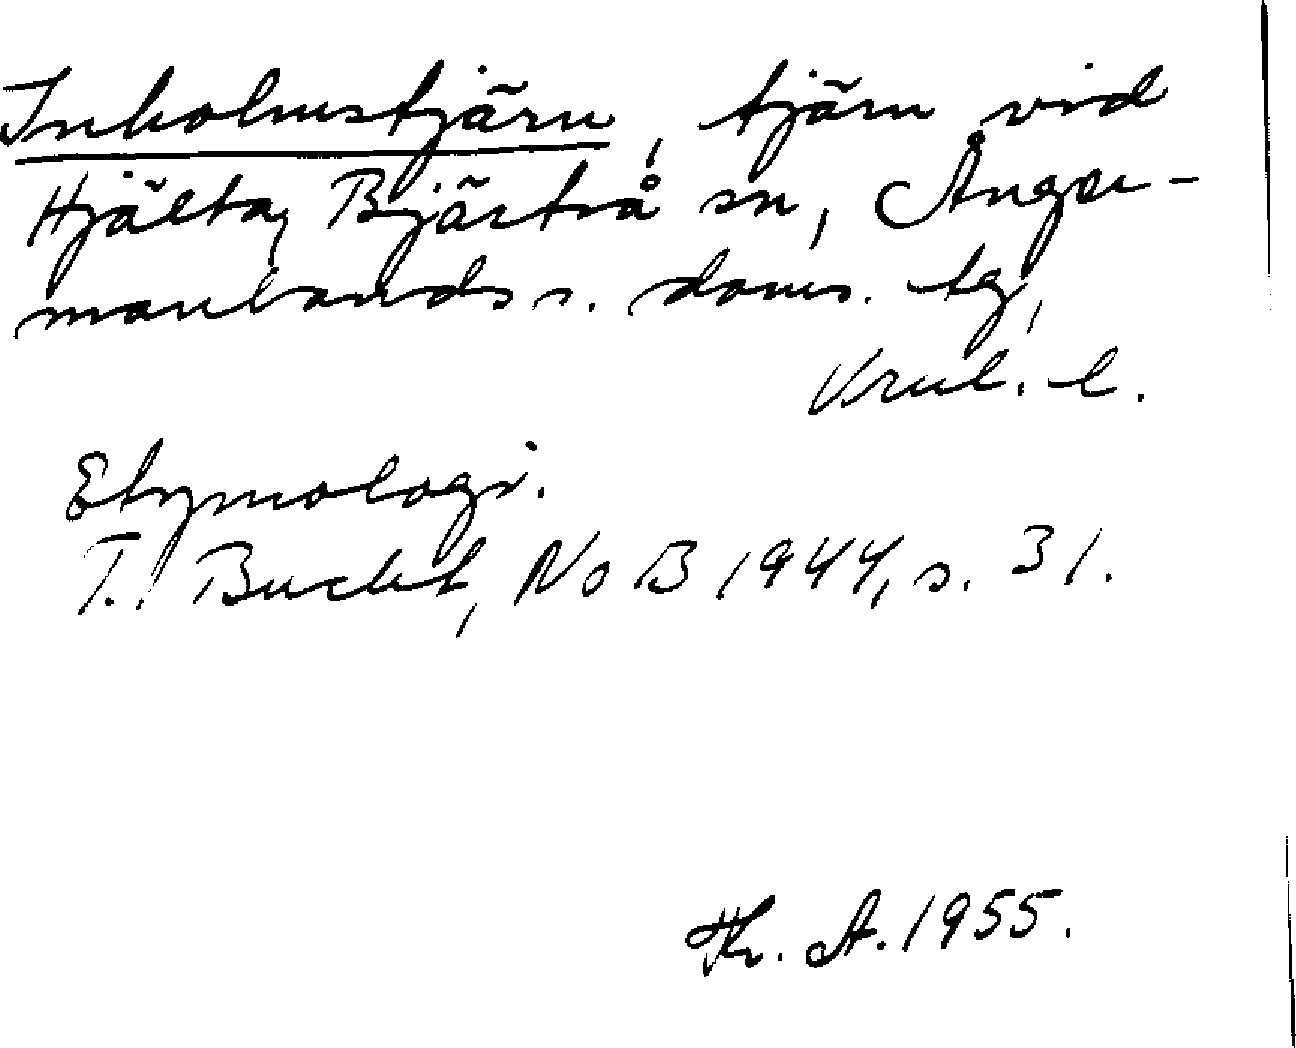 Inholmstjärn, tjärn vid
Hjälta, Bjärtrå sn, Ånger-
manlands s. doms. tg,
Vrnl. l.
Etymologi.
T. Bucht, NoB 1944, s. 31.
Hr. A. 1955.